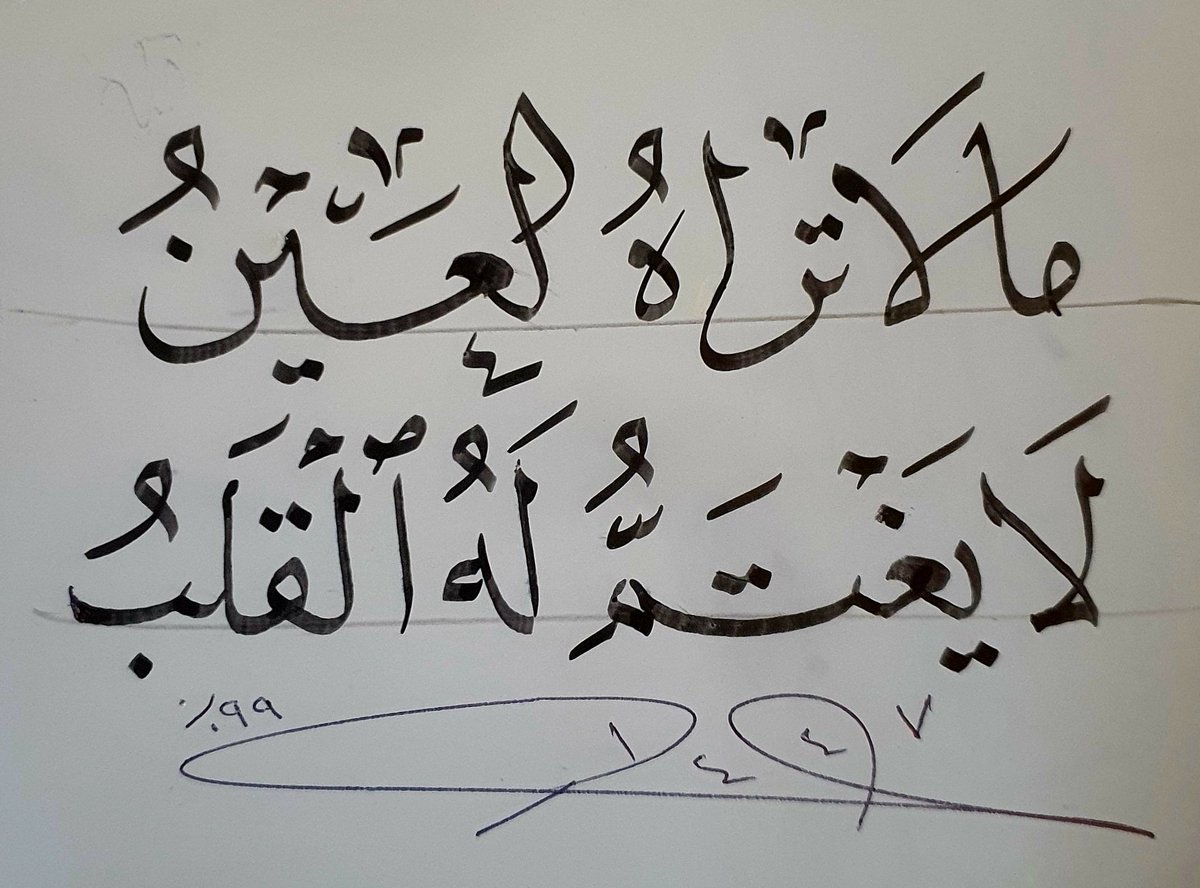 ما لا تراهُ العَيْنُ
لَا يَغْتَمُّ لَهُ ٱلْقَلَبُ
٩٩٪